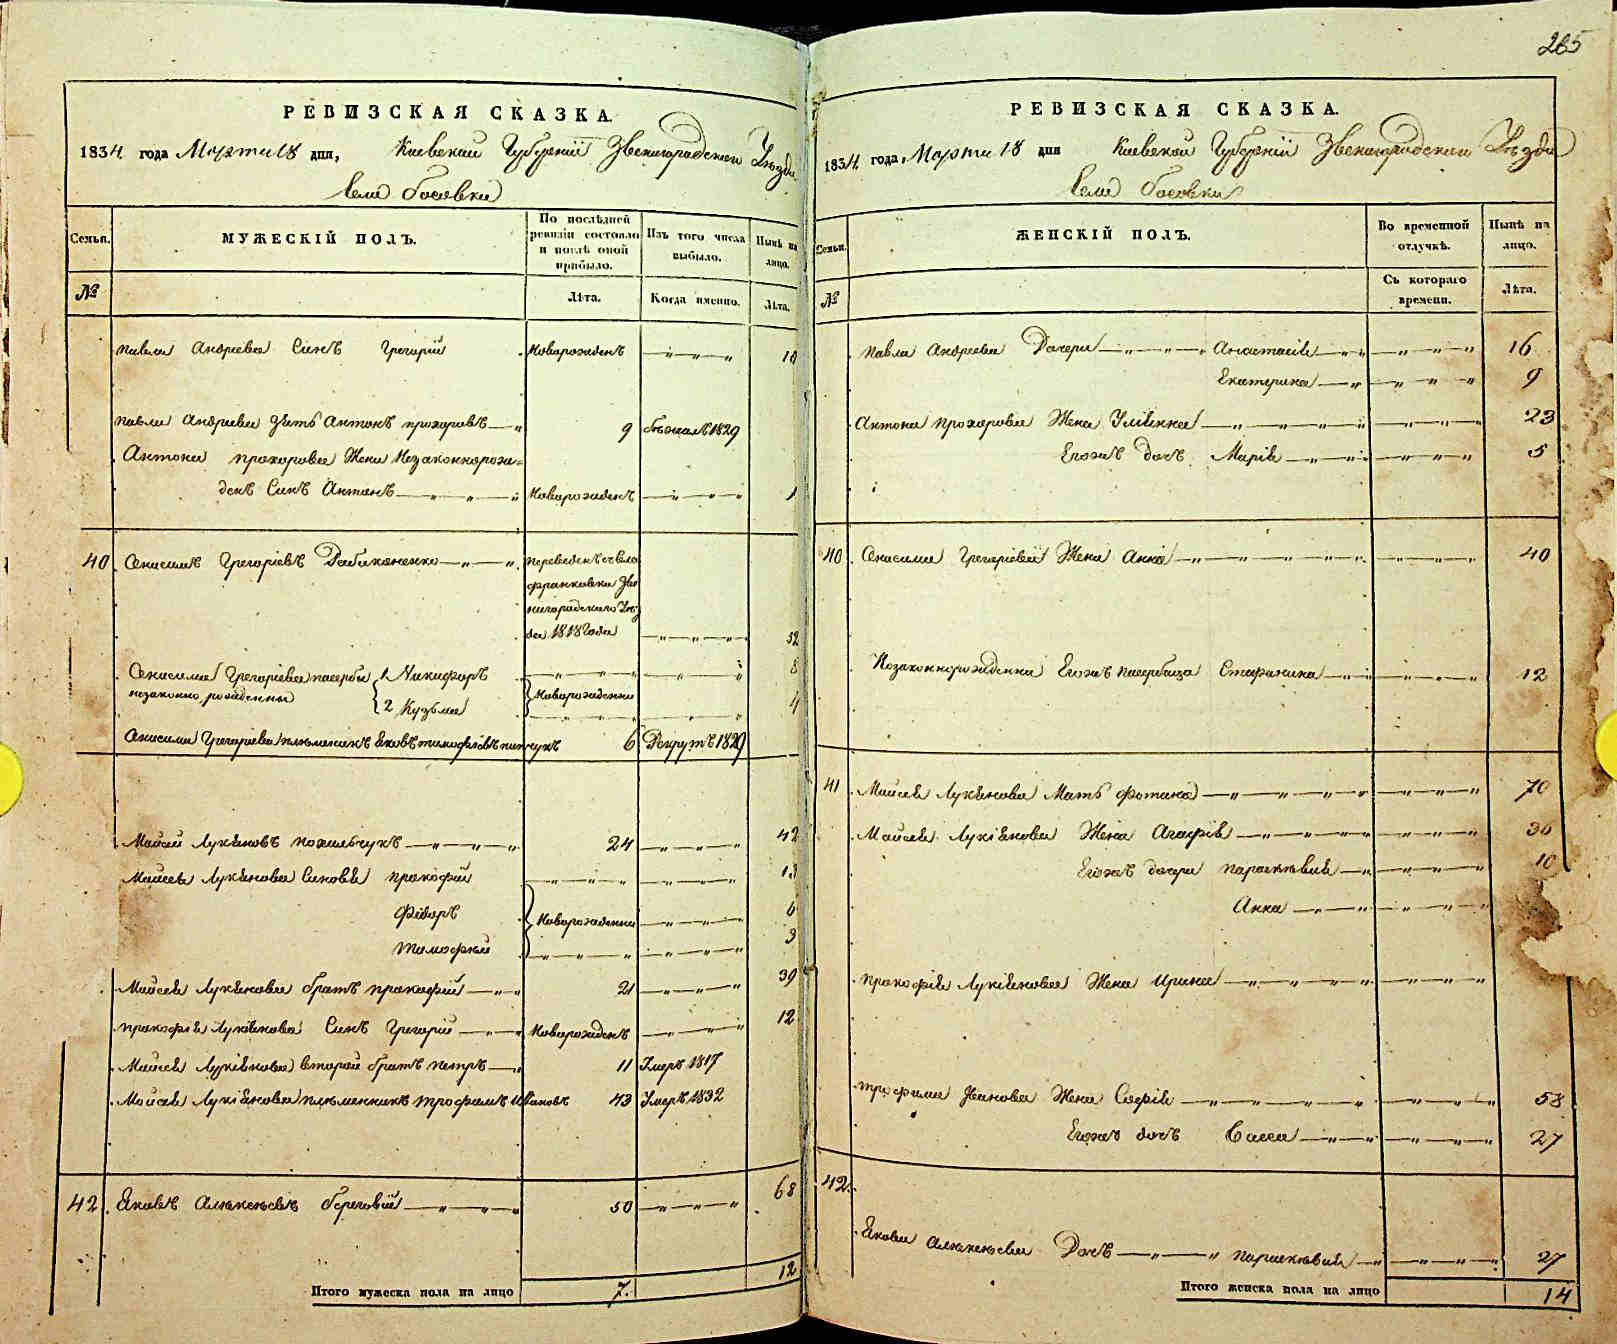 265
РЕВИЗСКАЯ СКАЗКА.
1834 года Марта 18 дня, Киевской Губерніи Звенигородскаго Уезда
Села Босовки
Семьи.
МУЖЕСКІЙ ПОЛЪ.
По послѣдней ревизіи состояло и послѣ оной прибыло.
Изъ того числа выбыло.
Нынѣ на лицо.
№
Лѣта.
Когда именно.
Лѣта.
Павла Андреева Синъ Григорій Новорожденъ 10
Павла Андреева Зять Антонъ Прохоровъ 9 Бѣжалъ 1829
Антона Прохорова Жена Незаконнорож=
денъ Синъ Антонъ Новорожденъ 1
40 Онисимъ Григоріевъ
Переведенъ
1818 Года 52
Онисима Григоріева пасербы 1 Никифоръ 8
незаконно рожденны 2 Кузьма Новорожденны 4
Анисима Григоріева племенникъ Яковъ 6 Рекрутъ 1829
Мойсей Лукіановъ 24 42
Мойсея Лукіанова Синовья Прокофій 13
Фёдоръ Новорожденны 6
Тимофей 3
Мойсея Лукіанова братъ Прокофій 21 39
Прокофія Лукіанова Синъ Григорій Новорожденъ 12
Мойсея Лукіанова второй братъ Петръ 11 Умеръ 1817
Мойсея Лукіанова племенникъ Трофимъ Ивановъ 43 Умеръ 1832
42 Яковъ Алексеевъ Береговій 50 68
Итого мужеска пола на лицо 7. 12
РЕВИЗСКАЯ СКАЗКА.
1834 года Марта 18 дня Киевской Губерніи Звенигородскаго Уезда
Села Босовки
Семьи.
ЖЕНСКІЙ ПОЛЪ.
Во временной отлучкѣ.
Нынѣ на лицо.
№
Съ котораго времени.
Лѣта.
Павла Андреева Дочери Анастасія 16
Екатерина 9
Антона Прохорова Жена Уліянна 23
Егожъ дочь Марія 5
40 Онисима Григоріева Жена Анна 40
Незаконнорожденна Егожъ пасербица Стефанида 12
41 Мойсея Лукіанова Мать Фотина 70
Мойсея Лукіанова Жена Агафія 36
Егожъ дочери Параскевія 10
Анна
Прокофія Лукіянова Жена Ирина
Трофима Иванова Жена Софія 58
Егожъ дочъ Васса 27
42.
Якова Алексеева Дочъ Параскевія 27
Итого женска пола на лицо 14